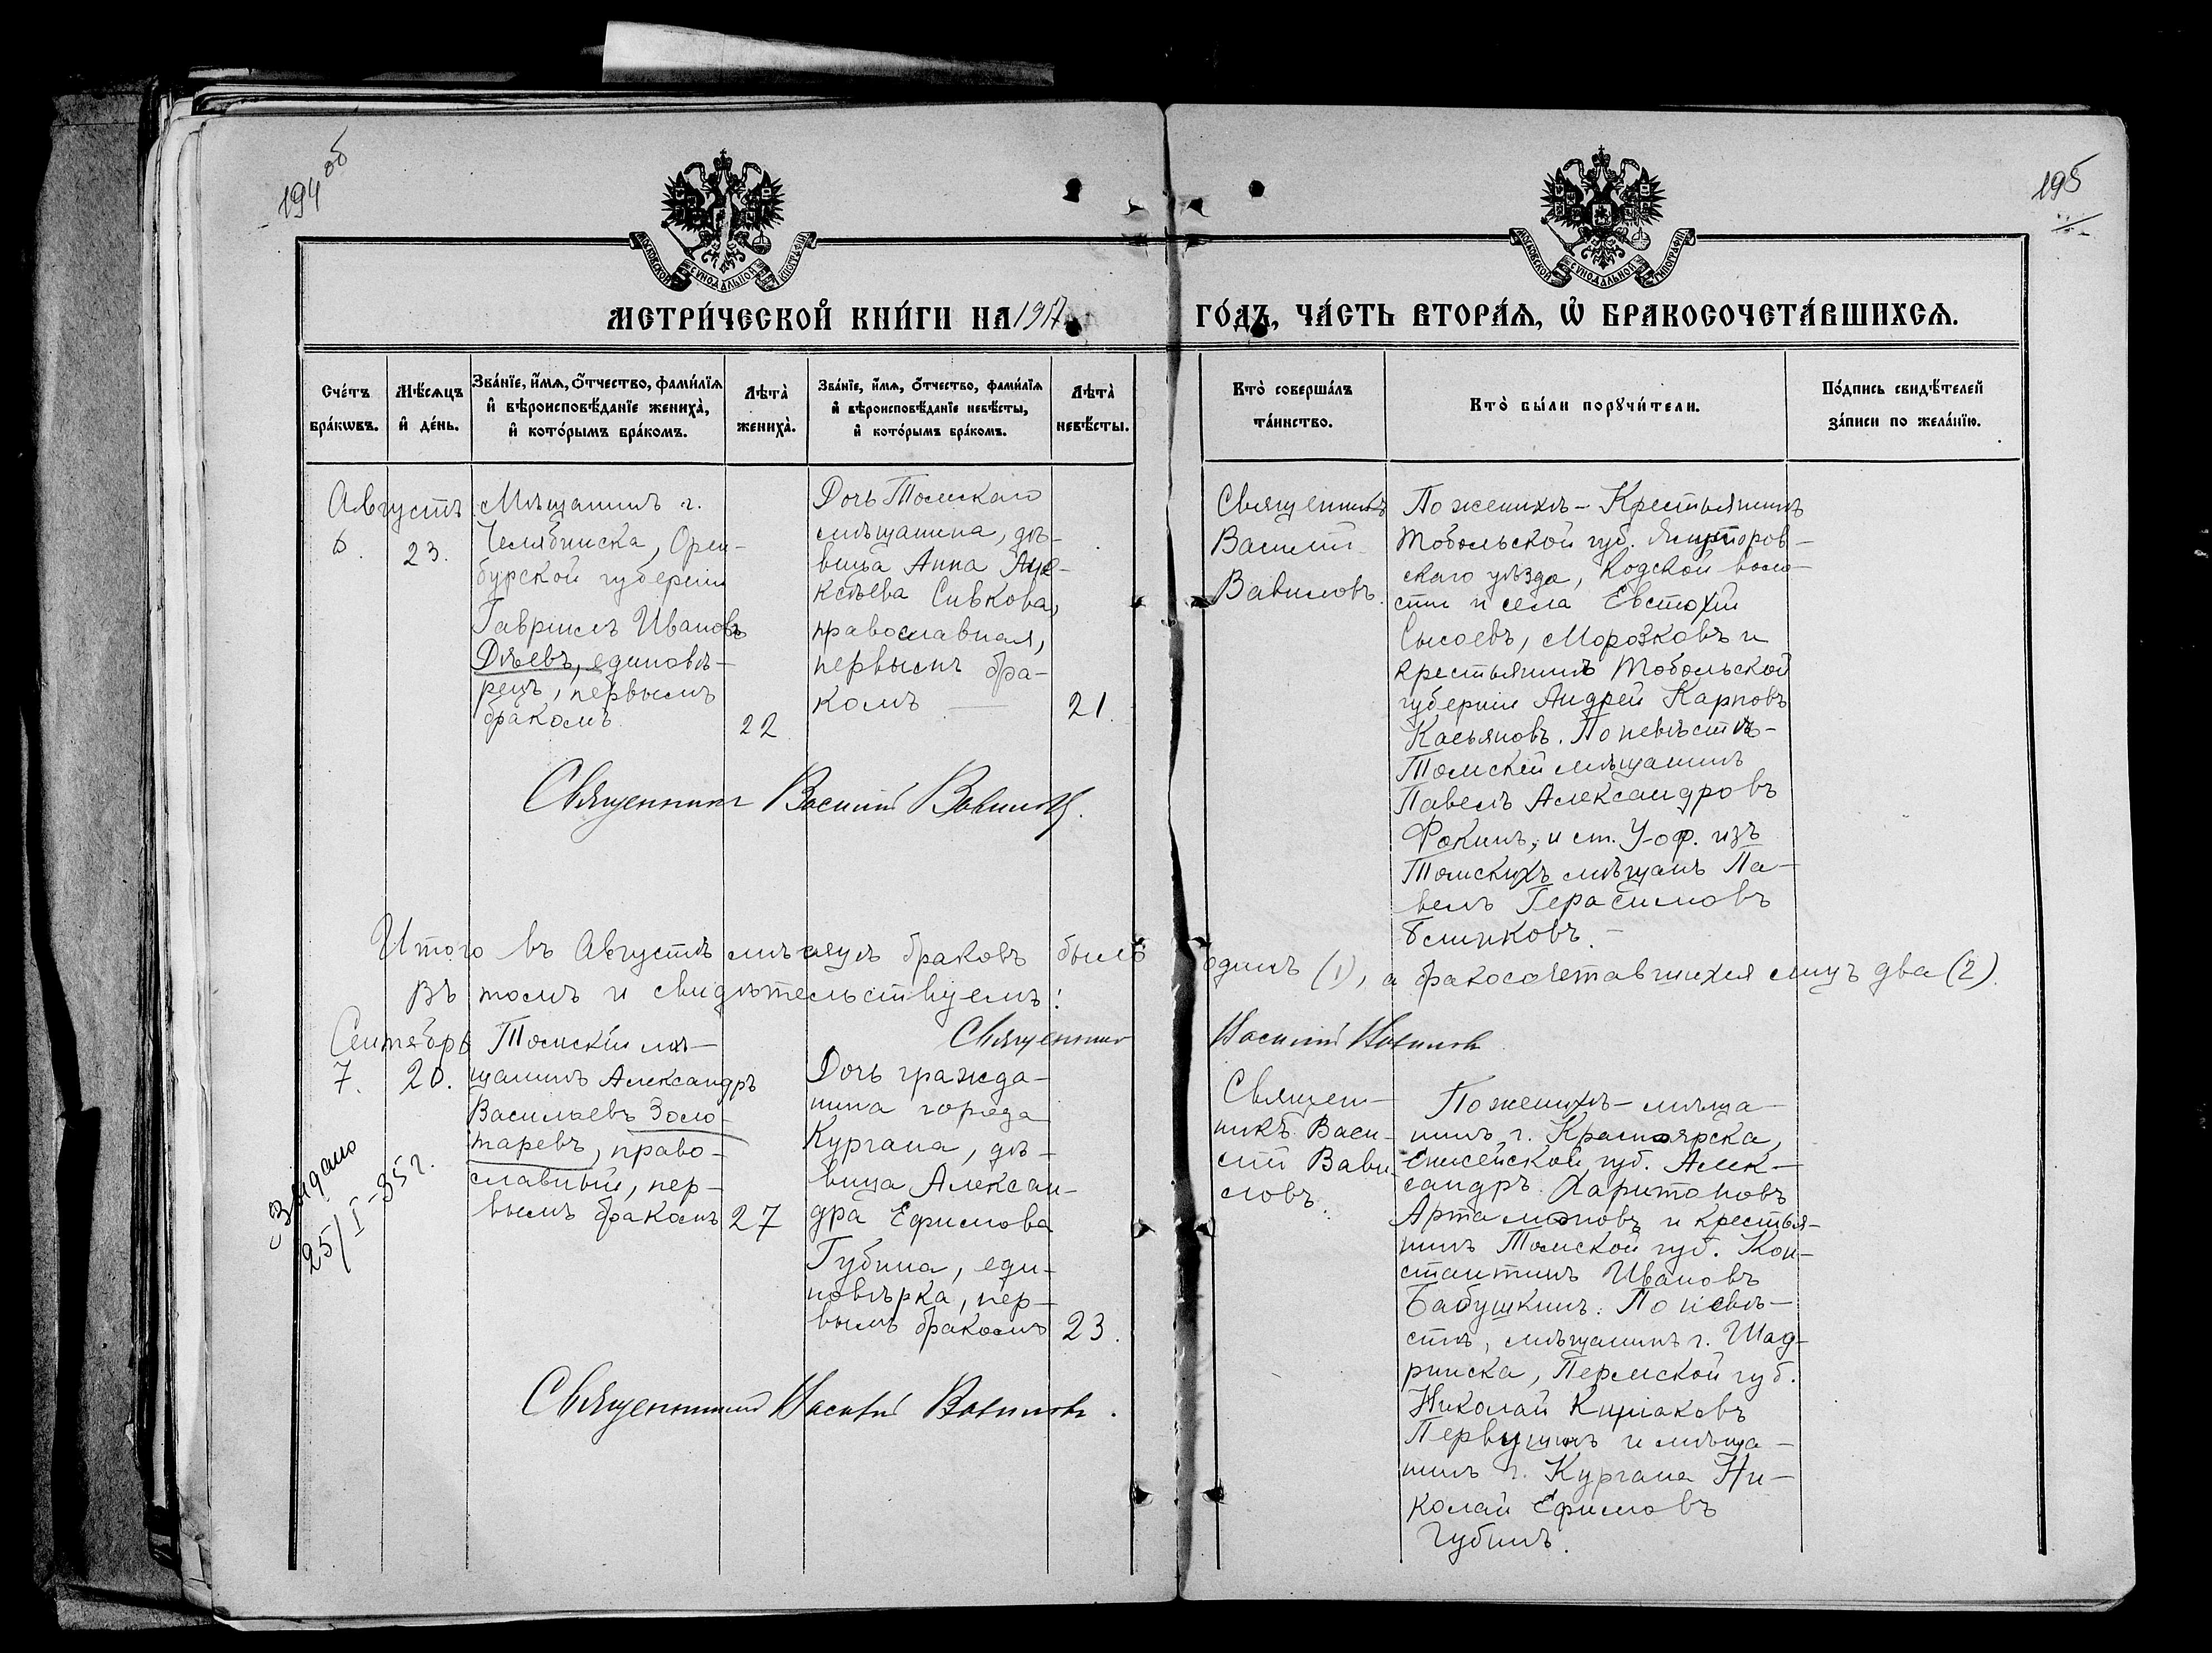 194 об
195
МОСКОВСКОЙ СѴНОДАЛЬНОЙ ТИПОГРАФІИ
МОСКОВСКОЙ СѴНОДАЛЬНОЙ ТИПОГРАФІИ
МЕТРИ́ЧЕСКОЙ КНИ́ГИ НА 1917
ГО́ДЪ, ЧА́СТЬ ВТОРА́Ѧ, Ѡ҆ БРАКОСОЧЕТА́ВШИХСѦ.
Сче́тъ
бра́кѡвъ.
Мѣ́сѧцъ
и҆ де́нь.
Зва́нїе, и҆́мѧ, ѻ҆́тчество, фами́лїѧ
и҆ вѣроисповѣ́данїе жениха̀,
и҆ кото́рымъ бра́комъ.
Лѣта̀
жениха̀.
Зва́нїе, и҆́мѧ, ѻ҆́тчество, фами́лїѧ
и҆ вѣроисповѣ́данїе невѣ́сты,
и҆ кото́рымъ бра́комъ.
Лѣта̀
невѣ́сты.
Кто̀ соверша́лъ
та́инство.
Кто̀ бы́ли порꙋчи́тели.
По́дпись свидѣ́телей
за́писи по жела́нїю.
Августъ
6.
23.
Мѣщанинъ г.
Челябинска, Орен-
бурской губерніи
Гавріилъ Ивановъ
Дѣевъ, единовѣ-
рецъ, первымъ
бракомъ.
22
Дочь Томскаго
мѣщанина, дѣ-
вица Анна Але-
ксѣева Сивкова,
православная,
первымъ бра-
комъ
21.
Священникъ
Василій
Вавиловъ.
По женихѣ - Крестьянинъ
Тобольской губ. Ялуторов-
скаго уѣзда, Кодской воло-
сти и села Евстохій
Сысоевъ, Морозковъ и
крестьянинъ Тобольской
губерніи Андрей Карповъ
Касьяновъ. По невѣстѣ -
Томскій мѣщанинъ
Павелъ Александровъ
Фокинъ, и ст. У-оф. изъ
Томскихъ мѣщанъ Па-
велъ Герасимовъ
Священникъ Василій Вавиловъ.
Итого въ Августѣ мѣсяцѣ браковъ было одинъ (1), а бракосочетавшихся лицъ два (2).
Въ томъ и свидѣтельствуемъ:
Священникъ Василій Вавиловъ
Сентябрь
7.
20.
Томскій мѣ-
щанинъ Александръ
Васильевъ Золо-
таревъ, право-
славный, пер-
вымъ бракомъ
27
Дочь гражда-
нина города
Кургана, дѣ-
вица Алексан-
дра Ефимова
Губина, еди-
новѣрка, пер-
вымъ бракомъ
23.
Священ-
никъ Васи-
лій Вави-
ловъ.
По женихѣ - мѣща-
нинъ г. Красноярска,
Енисейской губ. Алек-
сандръ Харитоновъ
Артамоновъ и крестья-
нинъ Томской губ. Кон-
стантинъ Ивановъ
Бабушкинъ. По невѣ-
стѣ, мѣщанинъ г. Шад-
ринска, Пермской губ.
Николай Киріаковъ
Первушинъ и мѣща-
нинъ г. Кургана Ни-
колай Ефимовъ
Губинъ.
выдано
25/I-35 г.
Священникъ Василій Вавиловъ.